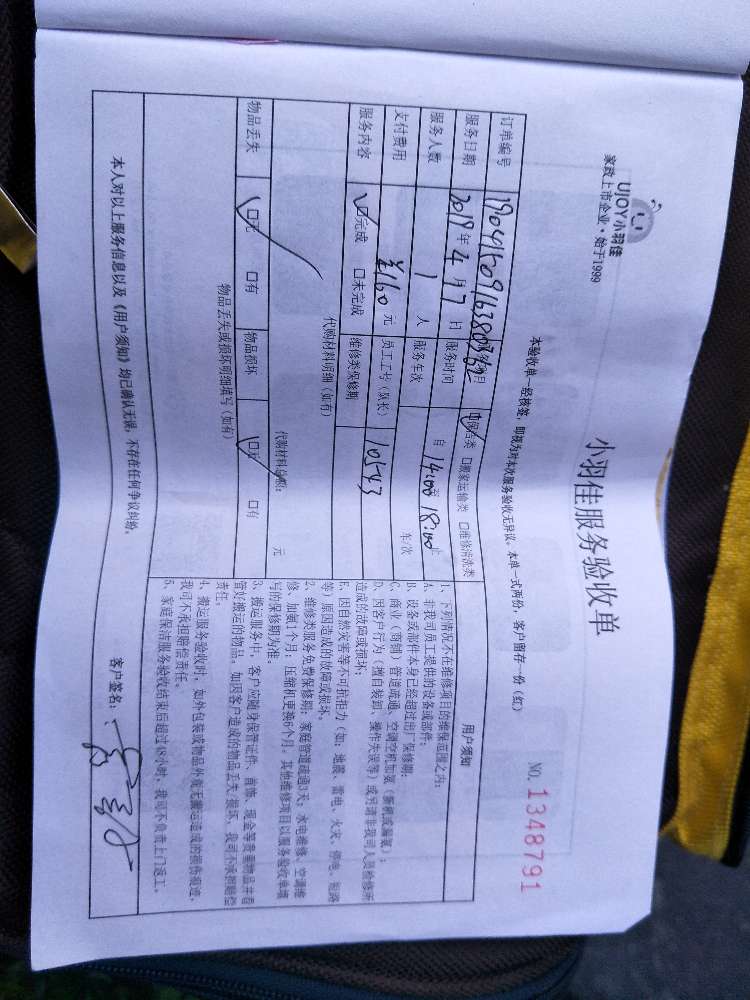 UJOY小羽佳
家政上市企业·始于1999
小羽佳服务验收单
NO. 1348791
本验收单一经核签，即视为对本次服务验收无异议。本单一式两份，客户留存一份（红）
订单编号
□保洁类 □搬家运输类 □维修清洗类
服务日期 2019年4月7日 服务时间 自14:00至18:00止
服务人数 1人 服务车次 车/次
支付费用 ¥160元 员工工号（队长） 10543
服务内容 □完成 □未完成 维修类保修期
代购材料明细（如有）
代购材料总额： 元
物品丢失 □无 □有 物品损坏 □无 □有
物品丢失或损坏明细填写（如有）
用户须知
1、下列情况不在维修项目的维保范围之内：
A、非我司员工提供的设备或部件；
B、设备或部件本身已经超过出厂保修期；
C、商业（商铺）管道疏通、空调空机加氨（新机或漏氨）；
D、因客户行为（擅自装卸、操作失误等）或另请非我司人员检修所
造成的故障或损坏；
E、因自然灾害等不可抗拒力（如：地震、雷电、火灾、停电、短路
等）原因造成的故障或损坏。
2、维修类服务免费保修期：家庭管道疏通3天，水电维修、空调维
修、加氨1个月；压缩机更换6个月。其他维修项目以服务验收单填
写的保修期为准。
3、搬运服务中，客户应随身保管证件、首饰、现金等贵重物品并看
管好搬运的物品。如因客户造成的物品丢失、损坏，我司不承担赔偿
责任。
4、搬运服务验收时，如外包装或物品外观无搬运造成的损伤痕迹，
我司不承担赔偿责任。
5、家庭保洁服务验收结束后超过48小时，我司不负责上门返工。
本人对以上服务信息以及《用户须知》均已确认无误，不存在任何争议纠纷。
客户签名：